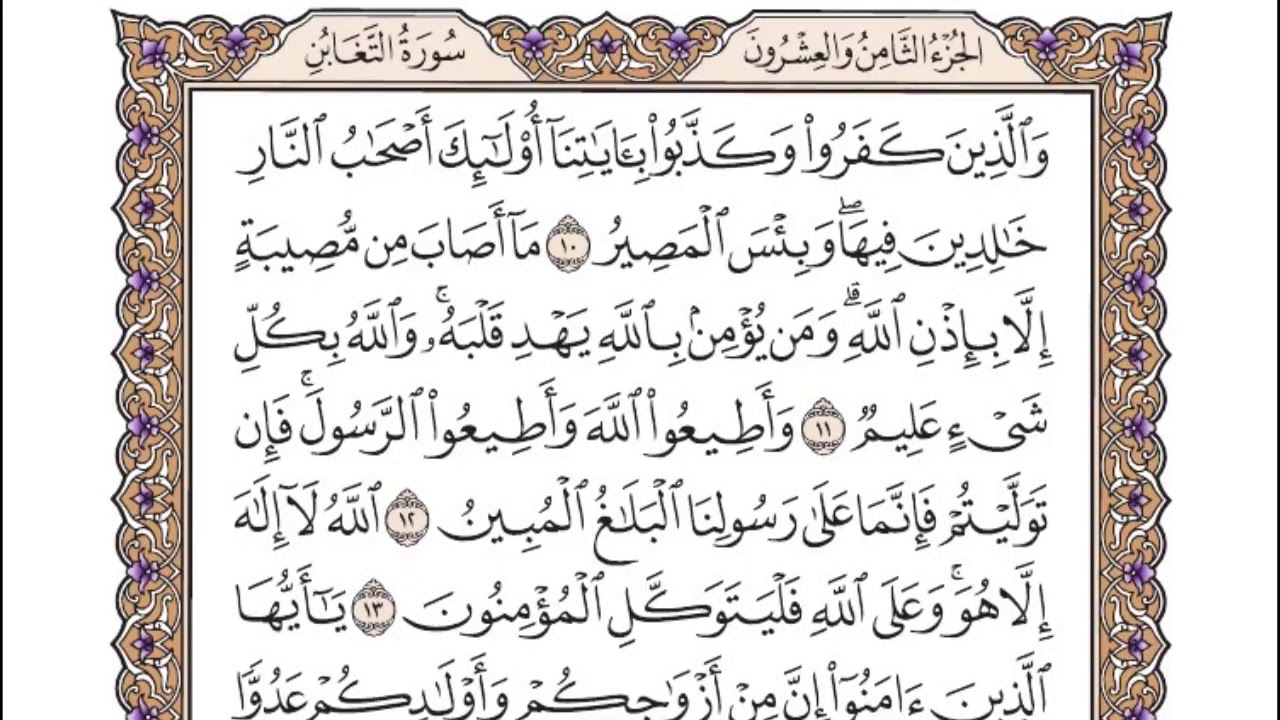 الجُزْءُ الثَّامِنُ وَالعِشْرُونَ
سُورَةُ التَّغَابُنِ
وَٱلَّذِينَ كَفَرُوا۟ وَكَذَّبُوا۟ بِـَٔايَـٰتِنَآ أُو۟لَـٰٓئِكَ أَصْحَـٰبُ ٱلنَّارِ
خَـٰلِدِينَ فِيهَا ۖ وَبِئْسَ ٱلْمَصِيرُ ١٠ مَآ أَصَابَ مِن مُّصِيبَةٍ
إِلَّا بِإِذْنِ ٱللَّهِ ۗ وَمَن يُؤْمِنۢ بِٱللَّهِ يَهْدِ قَلْبَهُۥ ۚ وَٱللَّهُ بِكُلِّ
شَىْءٍ عَلِيمٌ ١١ وَأَطِيعُوا۟ ٱللَّهَ وَأَطِيعُوا۟ ٱلرَّسُولَ ۚ فَإِن
تَوَلَّيْتُمْ فَإِنَّمَا عَلَىٰ رَسُولِنَا ٱلْبَلَـٰغُ ٱلْمُبِينُ ١٢ ٱللَّهُ لَآ إِلَـٰهَ
إِلَّا هُوَ ۚ وَعَلَى ٱللَّهِ فَلْيَتَوَكَّلِ ٱلْمُؤْمِنُونَ ١٣ يَـٰٓأَيُّهَا
ٱلَّذِينَ ءَامَنُوٓا۟ إِنَّ مِنْ أَزْوَٰجِكُمْ وَأَوْلَـٰدِكُمْ عَدُوًّا